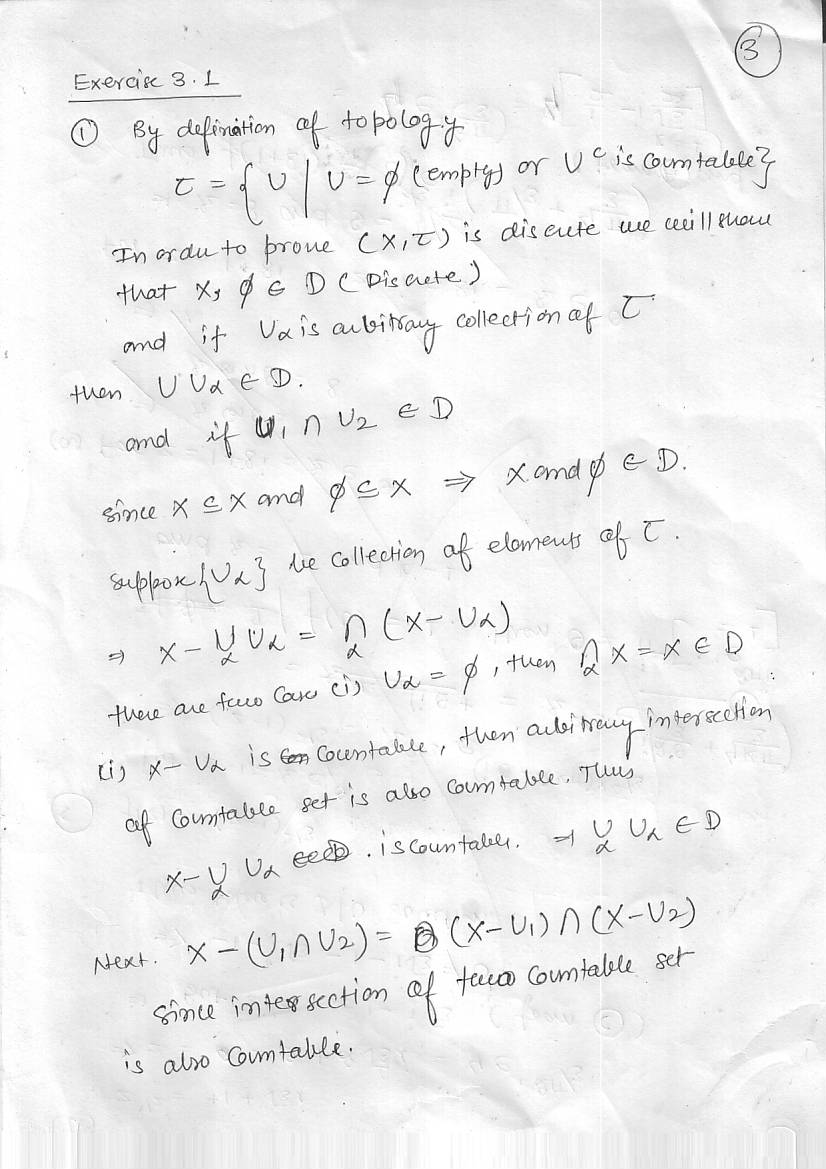 3
Exercise 3.1
① By definition of topology
τ = { U | U = ϕ (empty) or U^c is countable}
In order to prove (X, τ) is discrete we will show
that X, ϕ ∈ D (Discrete)
and if Uα is arbitrary collection of τ
then ∪ Uα ∈ D.
and if U₁ ∩ U₂ ∈ D
since X ⊆ X and ϕ ⊆ X ⇒ X and ϕ ∈ D.
suppose {Uα} be collection of elements of τ.
⇒ X - ∪α Uα = ∩α (X - Uα)
there are two Cases (i) Uα = ϕ, then ∩α X = X ∈ D
(ii) X - Uα is countable, then arbitrary intersection
of countable set is also countable. Thus
X - ∪α Uα . is countable. ⇒ ∪α Uα ∈ D
Next. X - (U₁ ∩ U₂) = (X - U₁) ∩ (X - U₂)
since intersection of two countable set
is also countable.